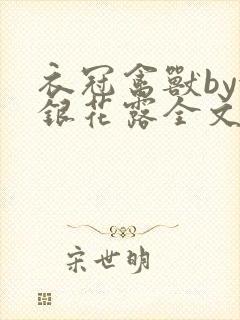 衣冠禽獸by
銀花露全文
宋世明